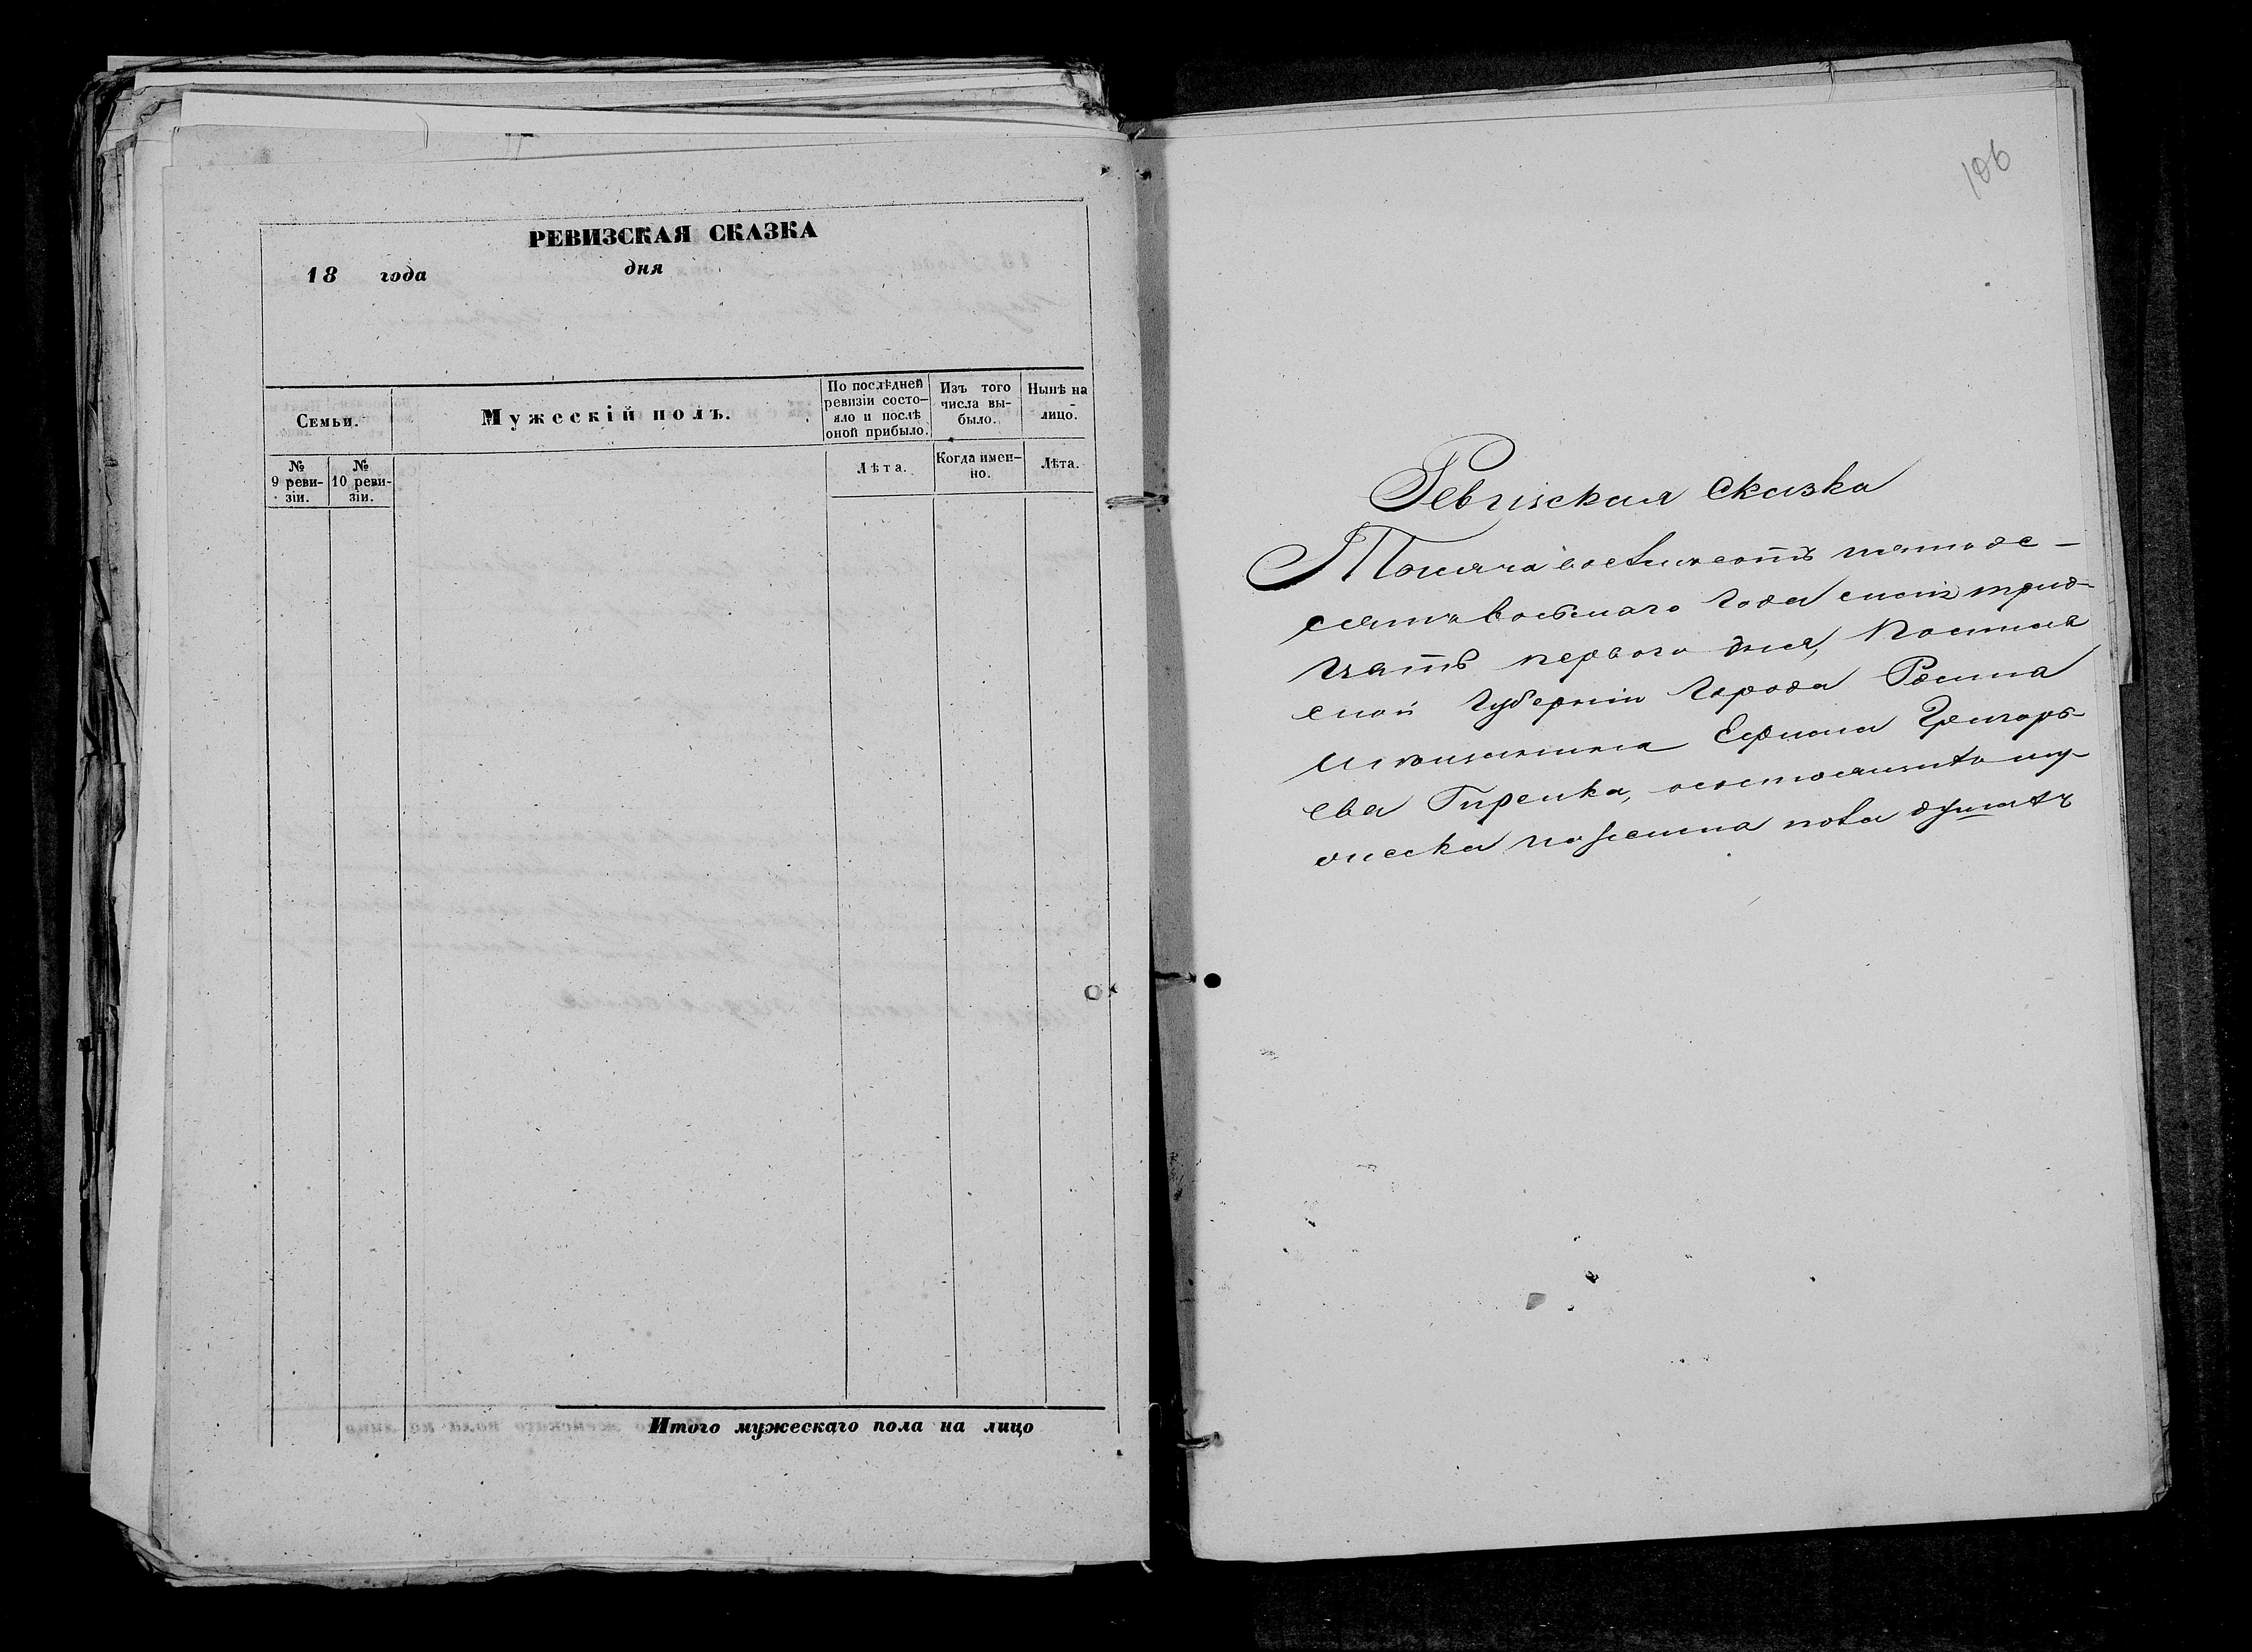 РЕВИЗСКАЯ СКАЗКА
18 года дня
Семьи.
Мужескій полъ.
По послѣдней
ревизіи состо-
яло и послѣ
оной прибыло.
Изъ того
числа вы-
было.
Нынѣ на
лицо.
№
9 реви-
зіи.
№
10 реви-
зіи.
Лѣта.
Когда имен-
но.
Лѣта.
Итого мужескаго пола на лицо
106
Ревизская Сказка
Тысяча восемьсотъ пятьде-
сятъ восьмаго года трид-
цать перваго дня,
Губерніи Города
Ефима Григорь-
ева о состоящихъ му-
пола душахъ